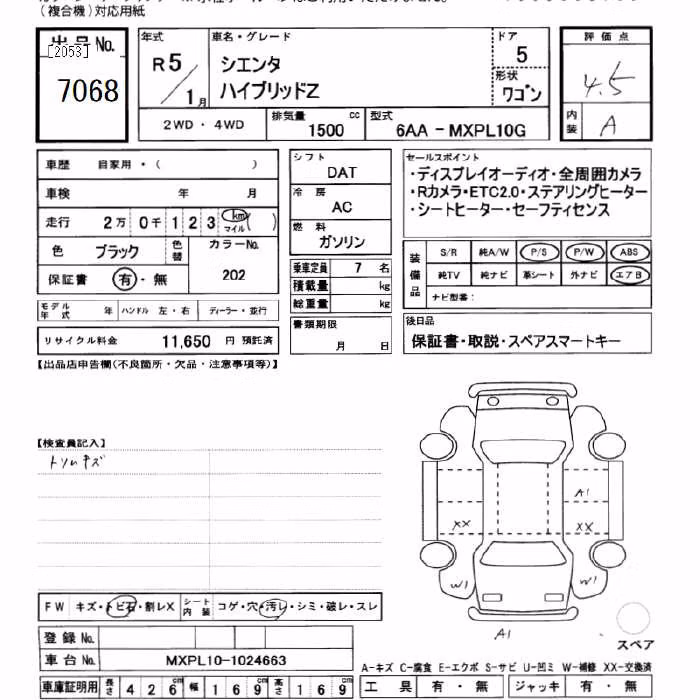 (複合機)対応用紙
出品No.
[2053]
7068
年式
R5/1月
車名・グレード
シエンタ
ハイブリッドZ
ドア
5
形状
ワゴン
2WD ・ 4WD
排気量
1500 cc
型式
6AA - MXPL10G
評価点
4.5
内装
A
車歴 自家用・( )
車検 年 月
走行 2万 0千 1 2 3 km マイル ( )
色 ブラック 色替
カラーNo.
202
保証書 有・無
モデル年式 年 ハンドル 左・右 ディーラー・並行
リサイクル料金 11,650 円 預託済
シフト
DAT
冷房
AC
燃料
ガソリン
乗車定員 7 名
積載量 kg
総重量 kg
書類期限
月 日
セールスポイント
・ディスプレイオーディオ・全周囲カメラ
・Rカメラ・ETC2.0・ステアリングヒーター
・シートヒーター・セーフティセンス
装備品
S/R 純A/W P/S P/W ABS
純TV 純ナビ 革シート 外ナビ エアB
ナビ型番:
後日品
保証書・取説・スペアスマートキー
【出品店申告欄(不良箇所・欠品・注意事項等)】
【検査員記入】
トソHキズ
A1
XX
XX
W1
W1
A1
スペア
FW キズ・トビ石・割レX
シート内装 コゲ・穴・汚レ・シミ・破レ・スレ
登録No.
車台No. MXPL10-1024663
車庫証明用 長さ 4 2 6 cm 幅 1 6 9 cm 高さ 1 6 9 cm
A-キズ C-腐食 E-エクボ S-サビ U-凹ミ W-補修 XX-交換済
工具 有・無 ジャッキ 有・無